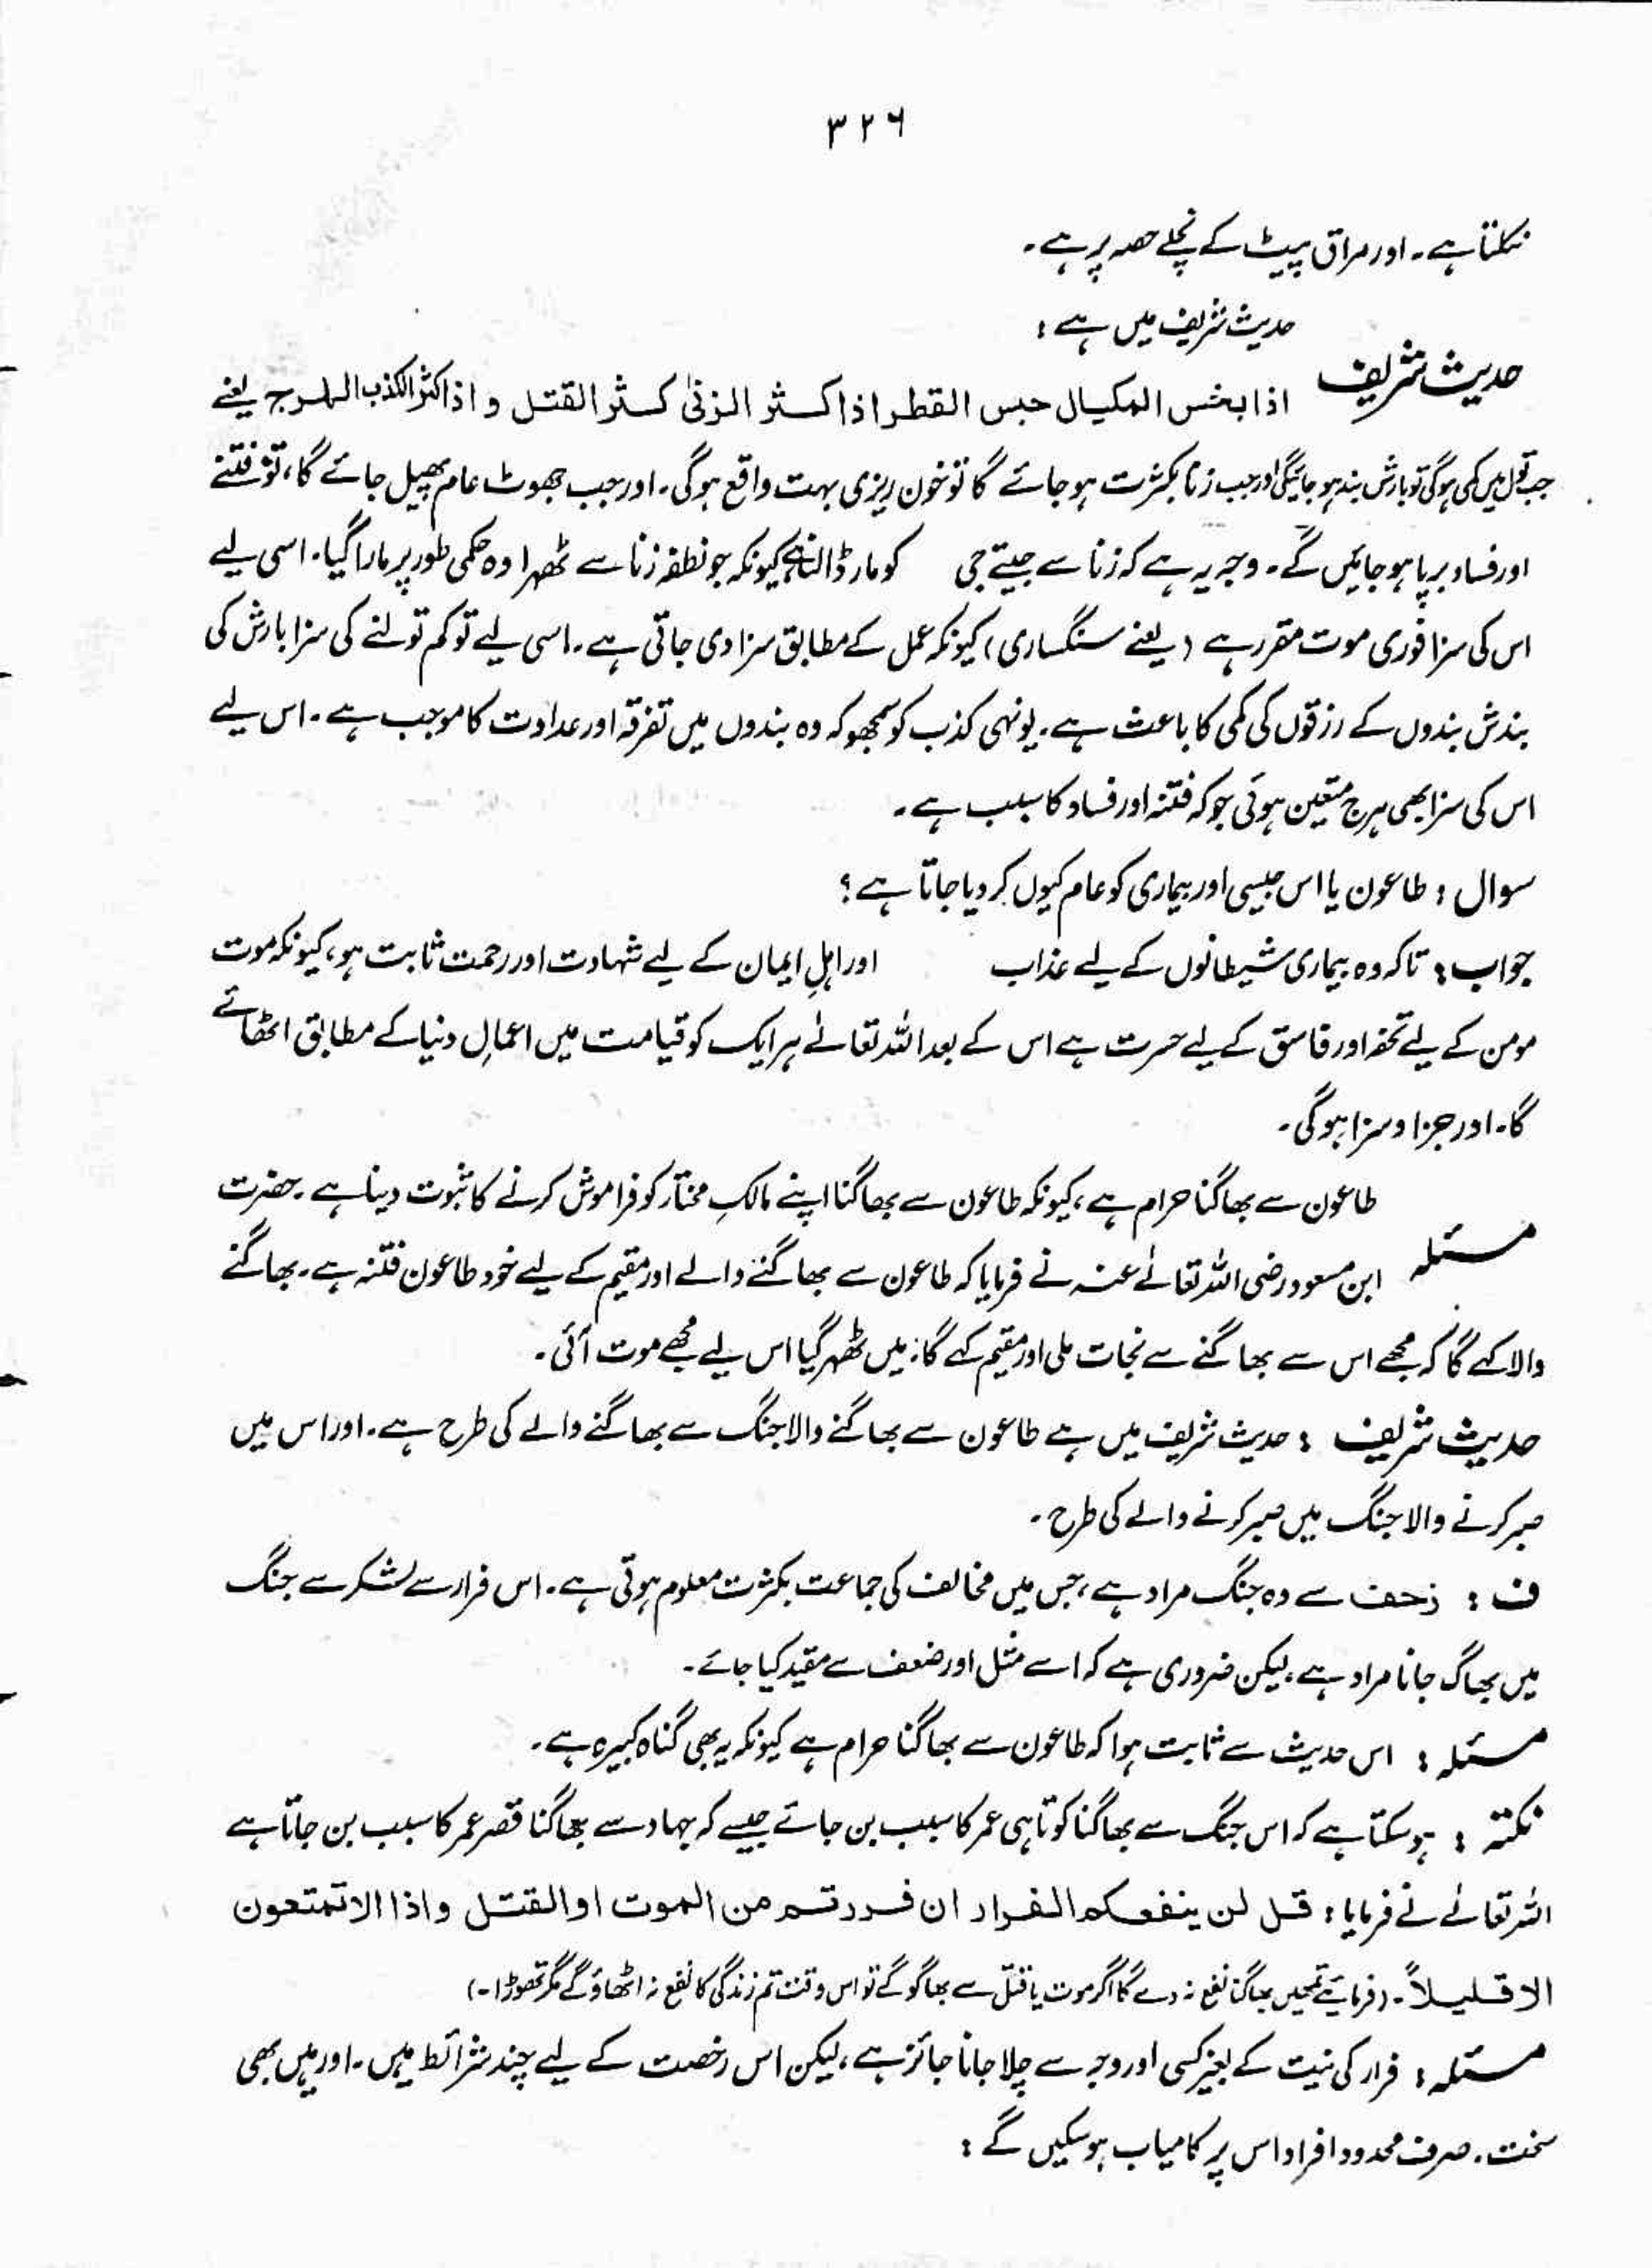 ۳۲۶
نکلتا ہے۔ اور مراق پیٹ کے نچلے حصہ پر ہے۔
حدیث شریف میں ہے :
حدیث شریف
اذا بخس المکیال حبس القطر اذا کثر الزنیٰ کثر القتل و اذا کثر الکذب الہرج یعنے
جب تول میں کمی ہوگی تو بارش بند ہو جائیگی اور جب زنا بکثرت ہو جائے گا تو خون ریزی بہت واقع ہوگی۔ اور جب جھوٹ عام پھیل جائے گا، تو فتنے
اور فساد برپا ہو جائیں گے۔ وجہ یہ ہے کہ زنا سے جیتے جی کو مار ڈالنا ہے کیونکہ جو نطفہ زنا سے ٹھہرا وہ حکمی طور پر مارا گیا۔ اسی لیے
اس کی سزا فوری موت مقرر ہے (یعنے سنگساری) کیونکہ عمل کے مطابق سزا دی جاتی ہے۔ اسی لیے تو کم تولنے کی سزا بارش کی
بندش بندوں کے رزقوں کی کمی کا باعث ہے۔ یونہی کذب کو سمجھو کہ وہ بندوں میں تفرقہ اور عداوت کا موجب ہے۔ اس لیے
اس کی سزا بھی ہرج متعین ہوئی جو کہ فتنہ اور فساد کا سبب ہے۔
سوال : طاعون یا اس جیسی اور بیماری کو عام کیوں کر دیا جاتا ہے ؟
جواب : تاکہ وہ بیماری شیطانوں کے لیے عذاب اور اہلِ ایمان کے لیے شہادت اور رحمت ثابت ہو، کیونکہ موت
مومن کے لیے تحفہ اور فاسق کے لیے حسرت ہے اس کے بعد اللہ تعالےٰ ہر ایک کو قیامت میں اعمالِ دنیا کے مطابق اٹھائے
گا۔ اور جزا و سزا ہوگی۔
طاعون سے بھاگنا حرام ہے، کیونکہ طاعون سے بھاگنا اپنے مالکِ مختار کو فراموش کرنے کا ثبوت دینا ہے۔ حضرت
مسئلہ
ابن مسعود رضی اللہ تعالےٰ عنہ نے فرمایا کہ طاعون سے بھاگنے والے اور مقیم کے لیے خود طاعون فتنہ ہے۔ بھاگنے
والا کہے گا کہ مجھے اس سے بھاگنے سے نجات ملی اور مقیم کہے گا: میں ٹھہر گیا اس لیے مجھے موت آئی۔
حدیث شریف : حدیث شریف میں ہے طاعون سے بھاگنے والا جنگ سے بھاگنے والے کی طرح ہے۔ اور اس میں
صبر کرنے والا جنگ میں صبر کرنے والے کی طرح۔
ف : زحف سے وہ جنگ مراد ہے، جس میں مخالف کی جماعت بکثرت معلوم ہوتی ہے۔ اس فرار سے لشکر سے جنگ
میں بھاگ جانا مراد ہے، لیکن ضروری ہے کہ اسے مثل اور ضعف سے مقید کیا جائے۔
مسئلہ : اس حدیث سے ثابت ہوا کہ طاعون سے بھاگنا حرام ہے کیونکہ یہ بھی گناہ کبیرہ ہے۔
نکتہ : ہو سکتا ہے کہ اس جنگ سے بھاگنا کوتاہی عمر کا سبب بن جائے جیسے کہ جہاد سے بھاگنا قصر عمر کا سبب بن جاتا ہے
اللہ تعالےٰ نے فرمایا : قل لن ینفعکم الفرار ان فررتم من الموت او القتل و اذا الا تمتعون
الا قلیلاً۔ (فرمایئے تمھیں بھاگنا نفع نہ دے گا اگر موت یا قتل سے بھاگو گے تو اس وقت تم زندگی کا نفع نہ اٹھاؤ گے مگر تھوڑا۔)
مسئلہ : فرار کی نیت کے بغیر کسی اور وجہ سے چلا جانا جائز ہے، لیکن اس رخصت کے لیے چند شرائط ہیں۔ اور ہیں بھی
سخت۔ صرف محدود افراد اس پر کامیاب ہو سکیں گے :